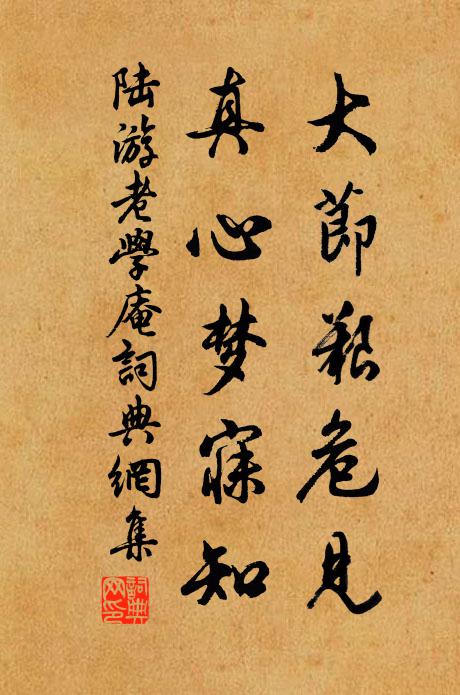 大節艱危見
真心梦寐知
陆游老學庵詞典網集
詞典
网印